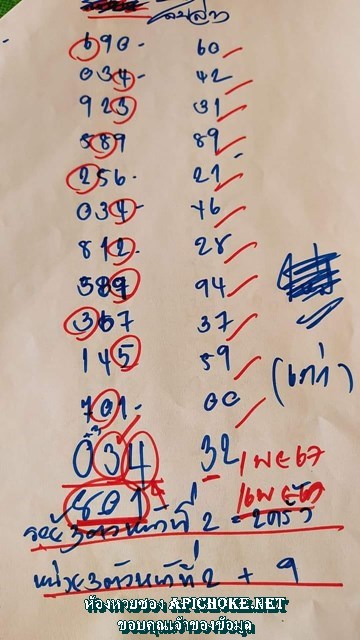 690- 60
034- 42
923 31
589 89
256- 21
034- 46
812- 28
589 94
367 37
145 59
701- 00
(เก่า)
034 32 1 พ.ย 67
801 16 พ.ย
3 ตัวหน้าที่ 2 = 2 ตัว
หน่วย 3 ตัวหน้าที่ 2 + 9
ห้องหวยซอง APICHOKE.NET
ขอบคุณเจ้าของข้อมูล